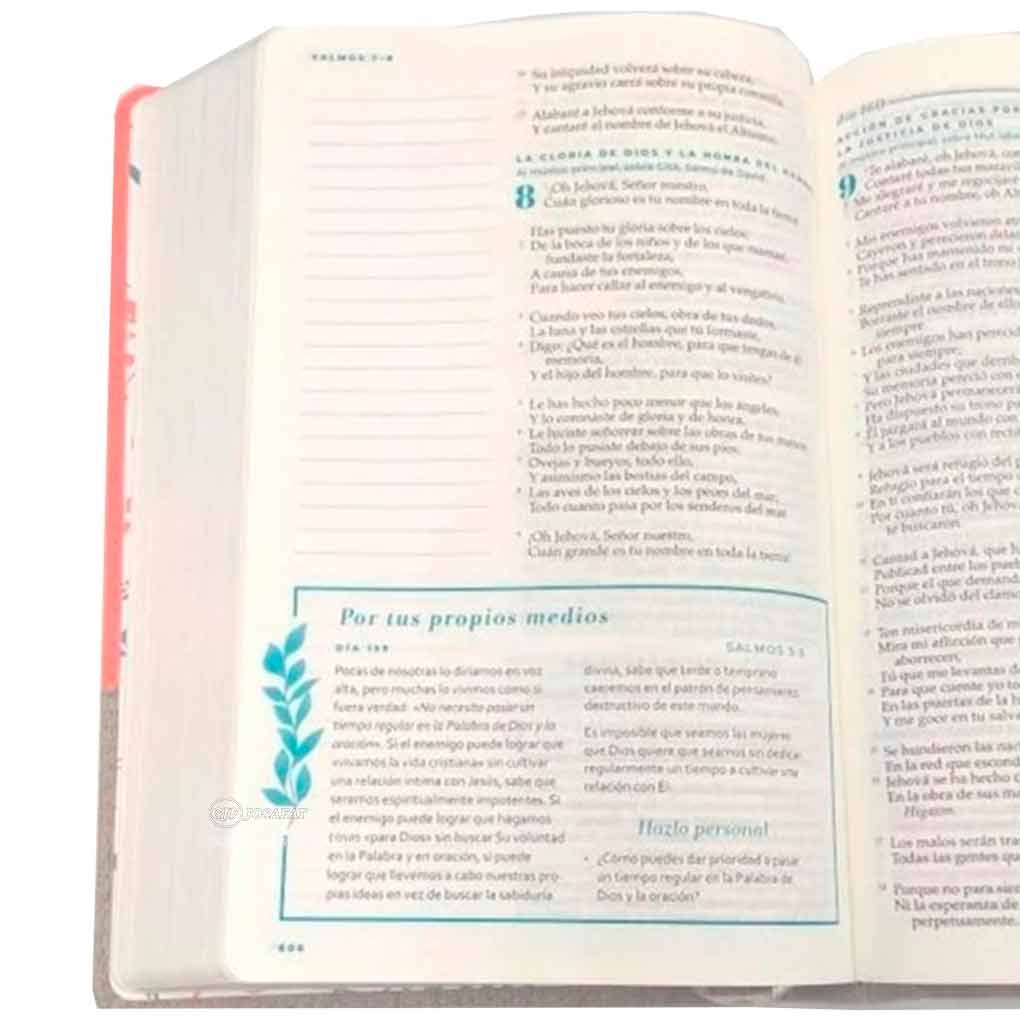 SALMOS 7-8
Su iniquidad volverá sobre su cabeza,
Y su agravio caerá sobre su propia coronilla.
Alabaré a Jehová conforme a su justicia,
Y cantaré el nombre de Jehová el Altísimo.
LA GLORIA DE DIOS Y LA HONRA DEL HOMBRE
Al músico principal; sobre Gitit. Salmo de David.
8 ¡Oh Jehová, Señor nuestro,
Cuán glorioso es tu nombre en toda la tierra!
Has puesto tu gloria sobre los cielos;
De la boca de los niños y de los que maman,
fundaste la fortaleza,
A causa de tus enemigos,
Para hacer callar al enemigo y al vengativo.
Cuando veo tus cielos, obra de tus dedos,
La luna y las estrellas que tú formaste,
Digo: ¿Qué es el hombre, para que tengas de él
memoria,
Y el hijo del hombre, para que lo visites?
Le has hecho poco menor que los ángeles,
Y lo coronaste de gloria y de honra.
Le hiciste señorear sobre las obras de tus manos;
Todo lo pusiste debajo de sus pies:
Ovejas y bueyes, todo ello,
Y asimismo las bestias del campo,
Las aves de los cielos y los peces del mar;
Todo cuanto pasa por los senderos del mar.
¡Oh Jehová, Señor nuestro,
Cuán grande es tu nombre en toda la tierra!
Por tus propios medios
DÍA 159
SALMOS 5:3
Pocas de nosotras lo diríamos en voz
alta, pero muchas lo vivimos como si
fuera verdad: «No necesito pasar un
tiempo regular en la Palabra de Dios y la
oración». Si el enemigo puede lograr que
«vivamos la vida cristiana» sin cultivar
una relación íntima con Jesús, sabe que
seremos espiritualmente impotentes. Si
el enemigo puede lograr que hagamos
cosas «para Dios» sin buscar Su voluntad
en la Palabra y en oración, sí puede
lograr que llevemos a cabo nuestras pro-
pias ideas en vez de buscar la sabiduría
divina, sabe que tarde o temprano
caeremos en el patrón de pensamiento
destructivo de este mundo.
Es imposible que seamos las mujeres
que Dios quiere que seamos sin dedicar
regularmente un tiempo a cultivar una
relación con Él.
Hazlo personal
• ¿Cómo puedes dar prioridad a pasar
un tiempo regular en la Palabra de
Dios y la oración?
606
JOSAFAT
ACCIÓN DE GRACIAS POR
LA JUSTICIA DE DIOS
Al músico principal; sobre Mut
9 Te alabaré, oh Jehová, con
Contaré todas tus maravil
Me alegraré y me regocijaré
Cantaré a tu nombre, oh Alt
Mis enemigos volvieron atr
Cayeron y perecieron delan
Porque has mantenido mi
Te has sentado en el trono j
Reprendiste a las naciones,
Borraste el nombre de ello
siempre.
Los enemigos han perecid
para siempre;
Y las ciudades que derrib
Su memoria pereció con e
Pero Jehová permanecerá
Ha dispuesto su trono pa
Él juzgará al mundo con
Y a los pueblos con recti
Jehová será refugio del p
Refugio para el tiempo
En ti confiarán los que c
Por cuanto tú, oh Jehov
te buscaron.
Cantad a Jehová, que h
Publicad entre los pueb
Porque el que demanda
No se olvidó del clamo
Ten misericordia de m
Mira mi aflicción que
aborrecen,
Tú que me levantas d
Para que cuente yo to
En las puertas de la h
Y me goce en tu salva
Se hundieron las nac
En la red que escond
Jehová se ha hecho c
En la obra de sus m
Higaion.
Los malos serán tras
Todas las gentes qu
Porque no para siem
Ni la esperanza de
perpetuamente.